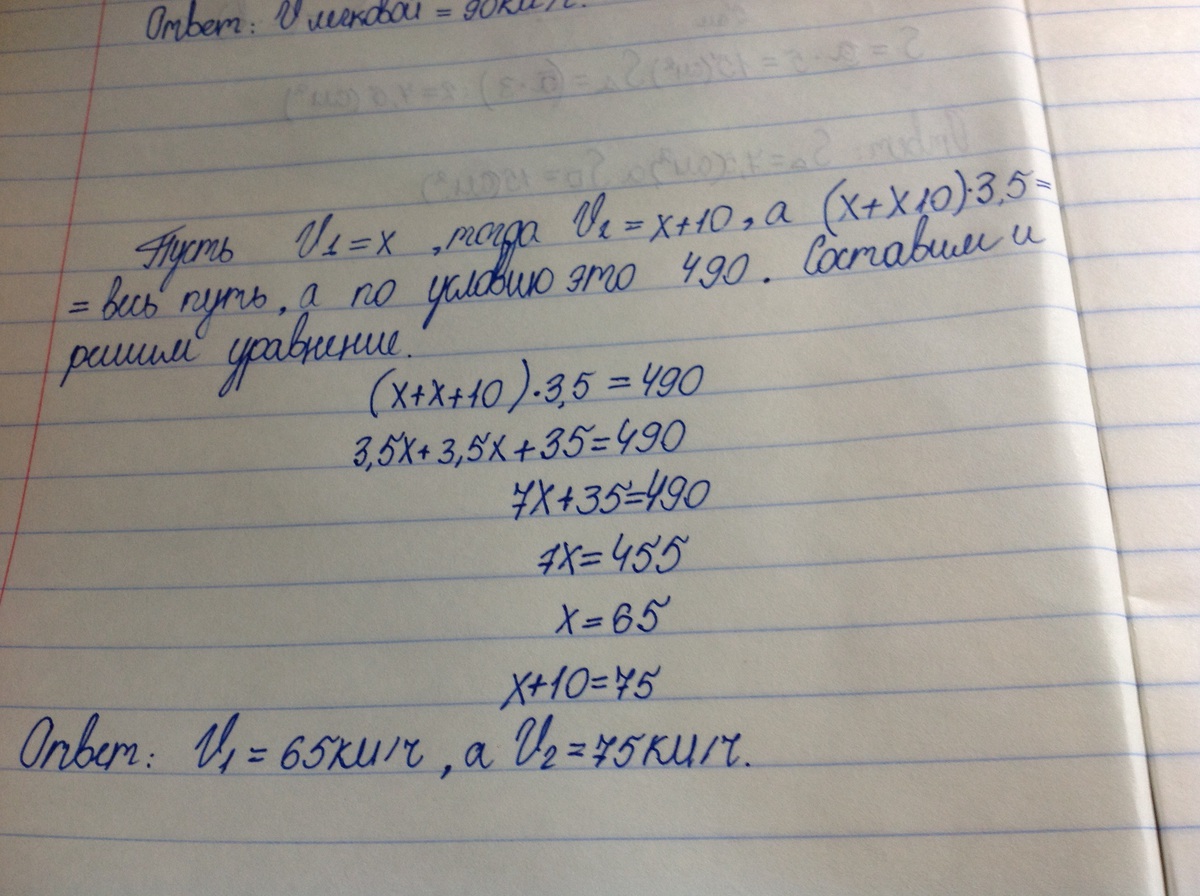 Ответ: V легковой = 90км/ч.
Пусть V1=x , тогда V2=x+10, а (x+x10)·3,5=
= весь путь, а по условию это 490. Составим и
решим уравнение.
(x+x+10)·3,5=490
3,5x+3,5x+35=490
7x+35=490
7x=455
x=65
x+10=75
Ответ: V1=65км/ч, а V2=75км/ч.